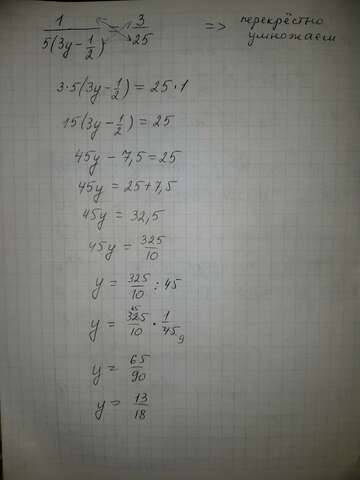 1/(5(3y-1/2)) = 3/25 => перекрёстно умножаем
3·5(3y-1/2) = 25·1
15(3y-1/2) = 25
45y - 7,5 = 25
45y = 25+7,5
45y = 32,5
45y = 325/10
y = 325/10 : 45
y = 65 325/10 · 1/45 9
y = 65/90
y = 13/18